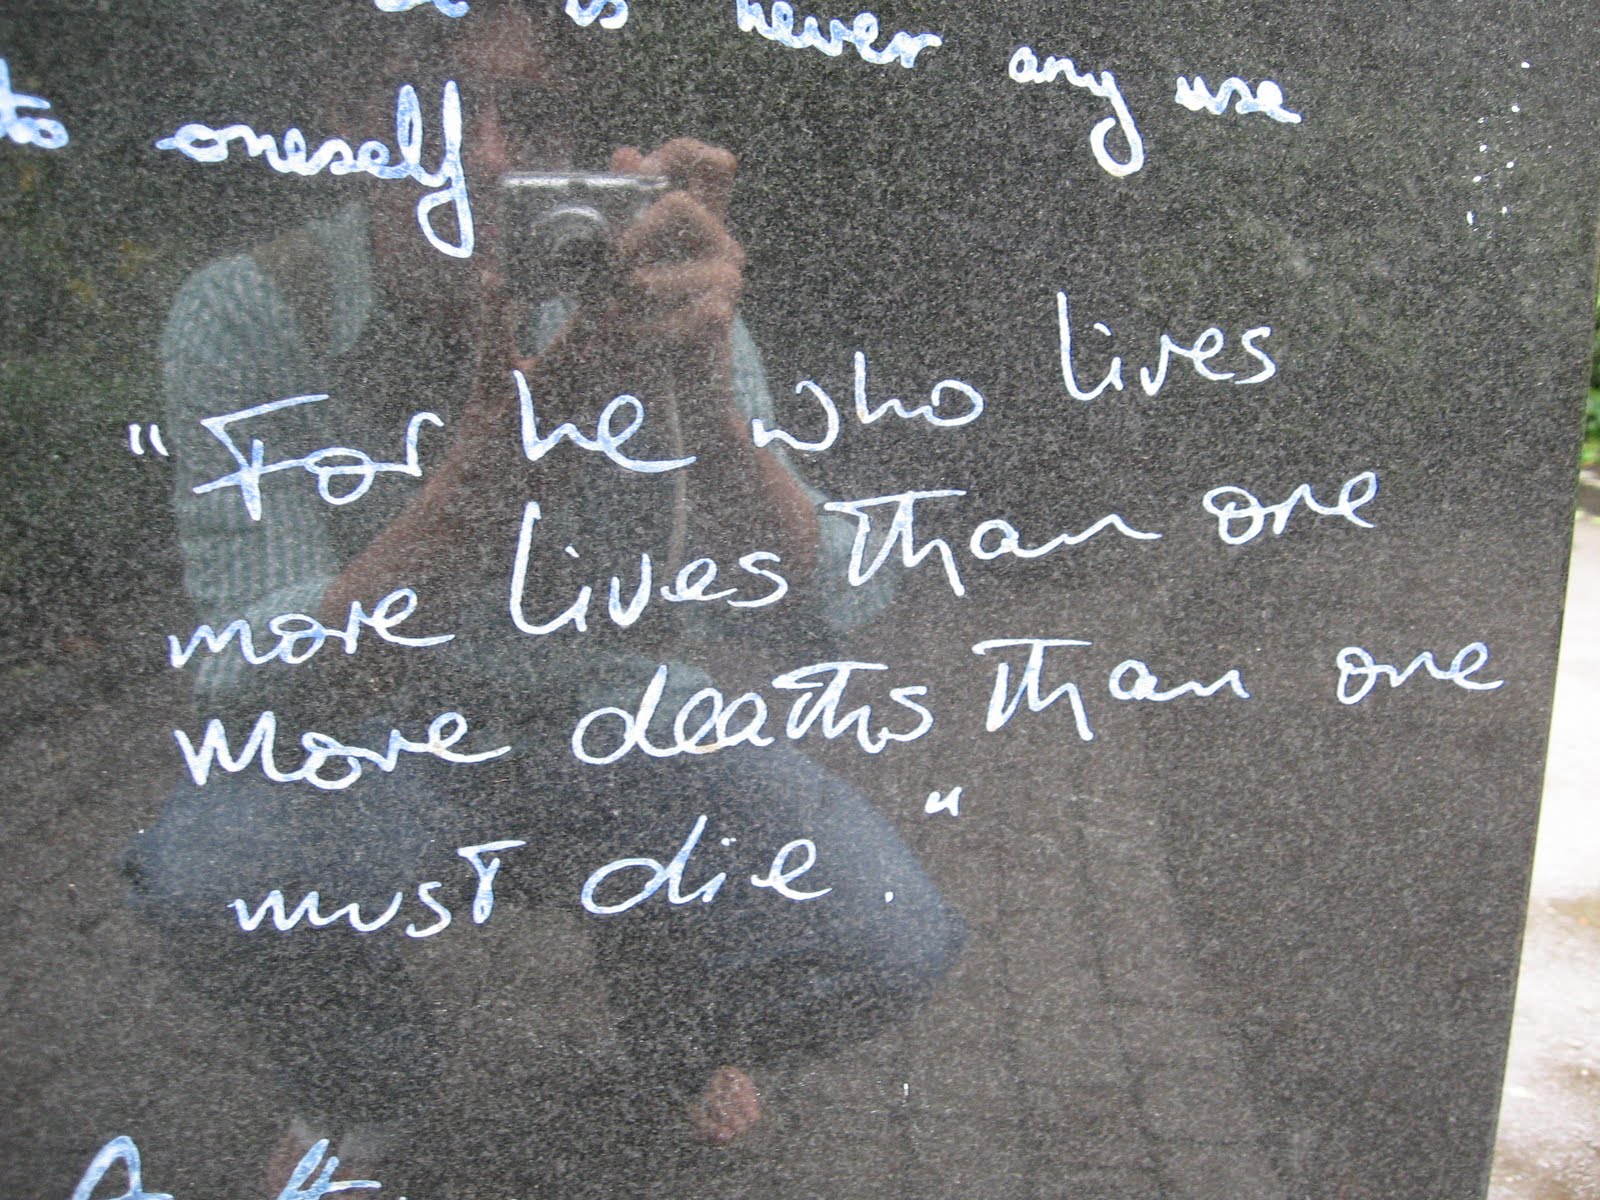 is never any use
to oneself
"For he who lives
more lives than one
More deaths than one
must die."